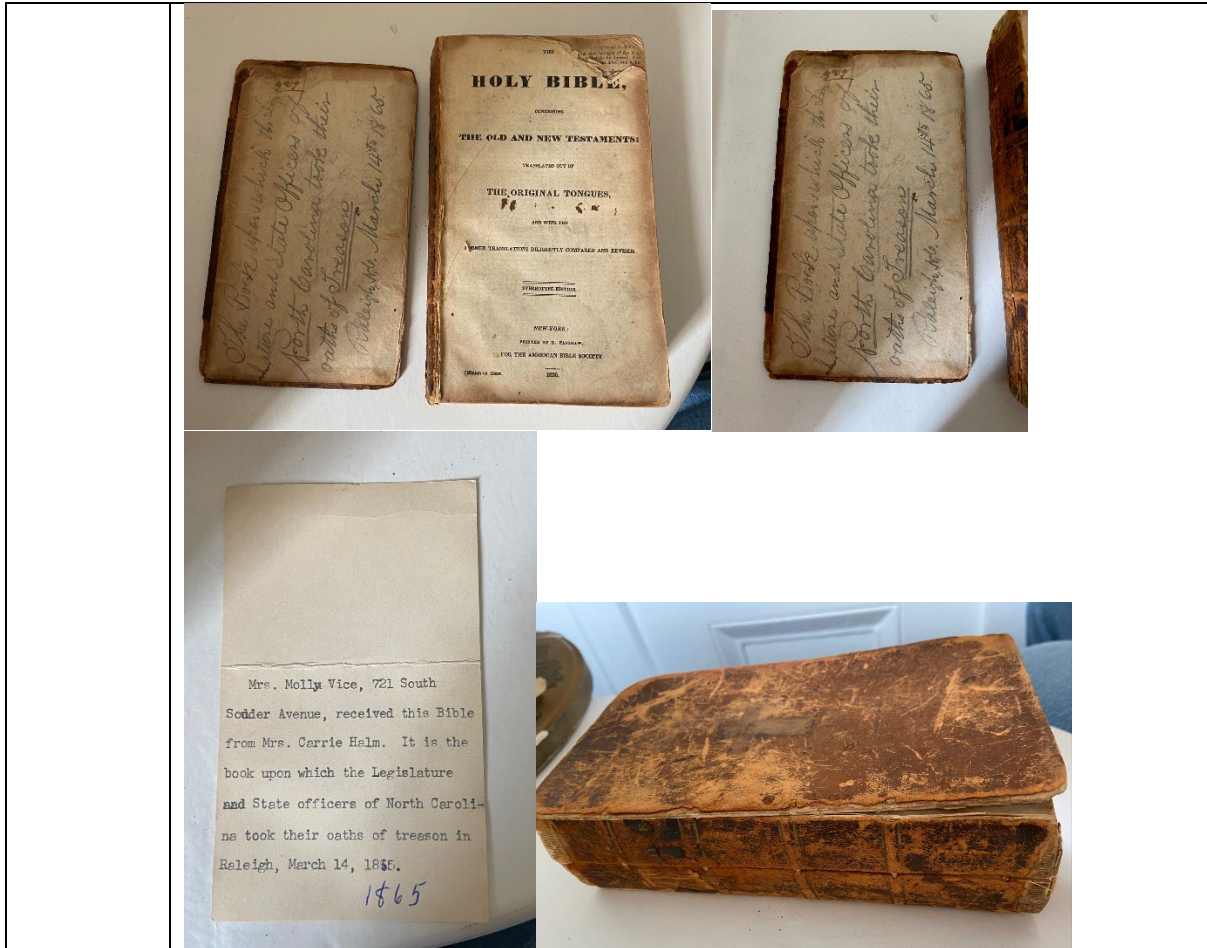 The Book upon which the
lature and State Officers of
North Carolina took their
oaths of Treason
Raleigh, N.C., March 14th 1865
THE
HOLY BIBLE,
CONTAINING
THE OLD AND NEW TESTAMENTS:
TRANSLATED OUT OF
THE ORIGINAL TONGUES,
AND WITH THE
FORMER TRANSLATIONS DILIGENTLY COMPARED AND REVISED.
STEREOTYPE EDITION.
NEW-YORK:
PRINTED BY D. FANSHAW,
FOR THE AMERICAN BIBLE SOCIETY.
1830.
The Book upon which the
lature and State Officers of
North Carolina took their
oaths of Treason
Raleigh, N.C., March 14th 1865
Mrs. Molly Vice, 721 South
Sodder Avenue, received this Bible
from Mrs. Carrie Halm. It is the
book upon which the Legislature
and State officers of North Caroli-
na took their oaths of treason in
Raleigh, March 14, 1865.
1865